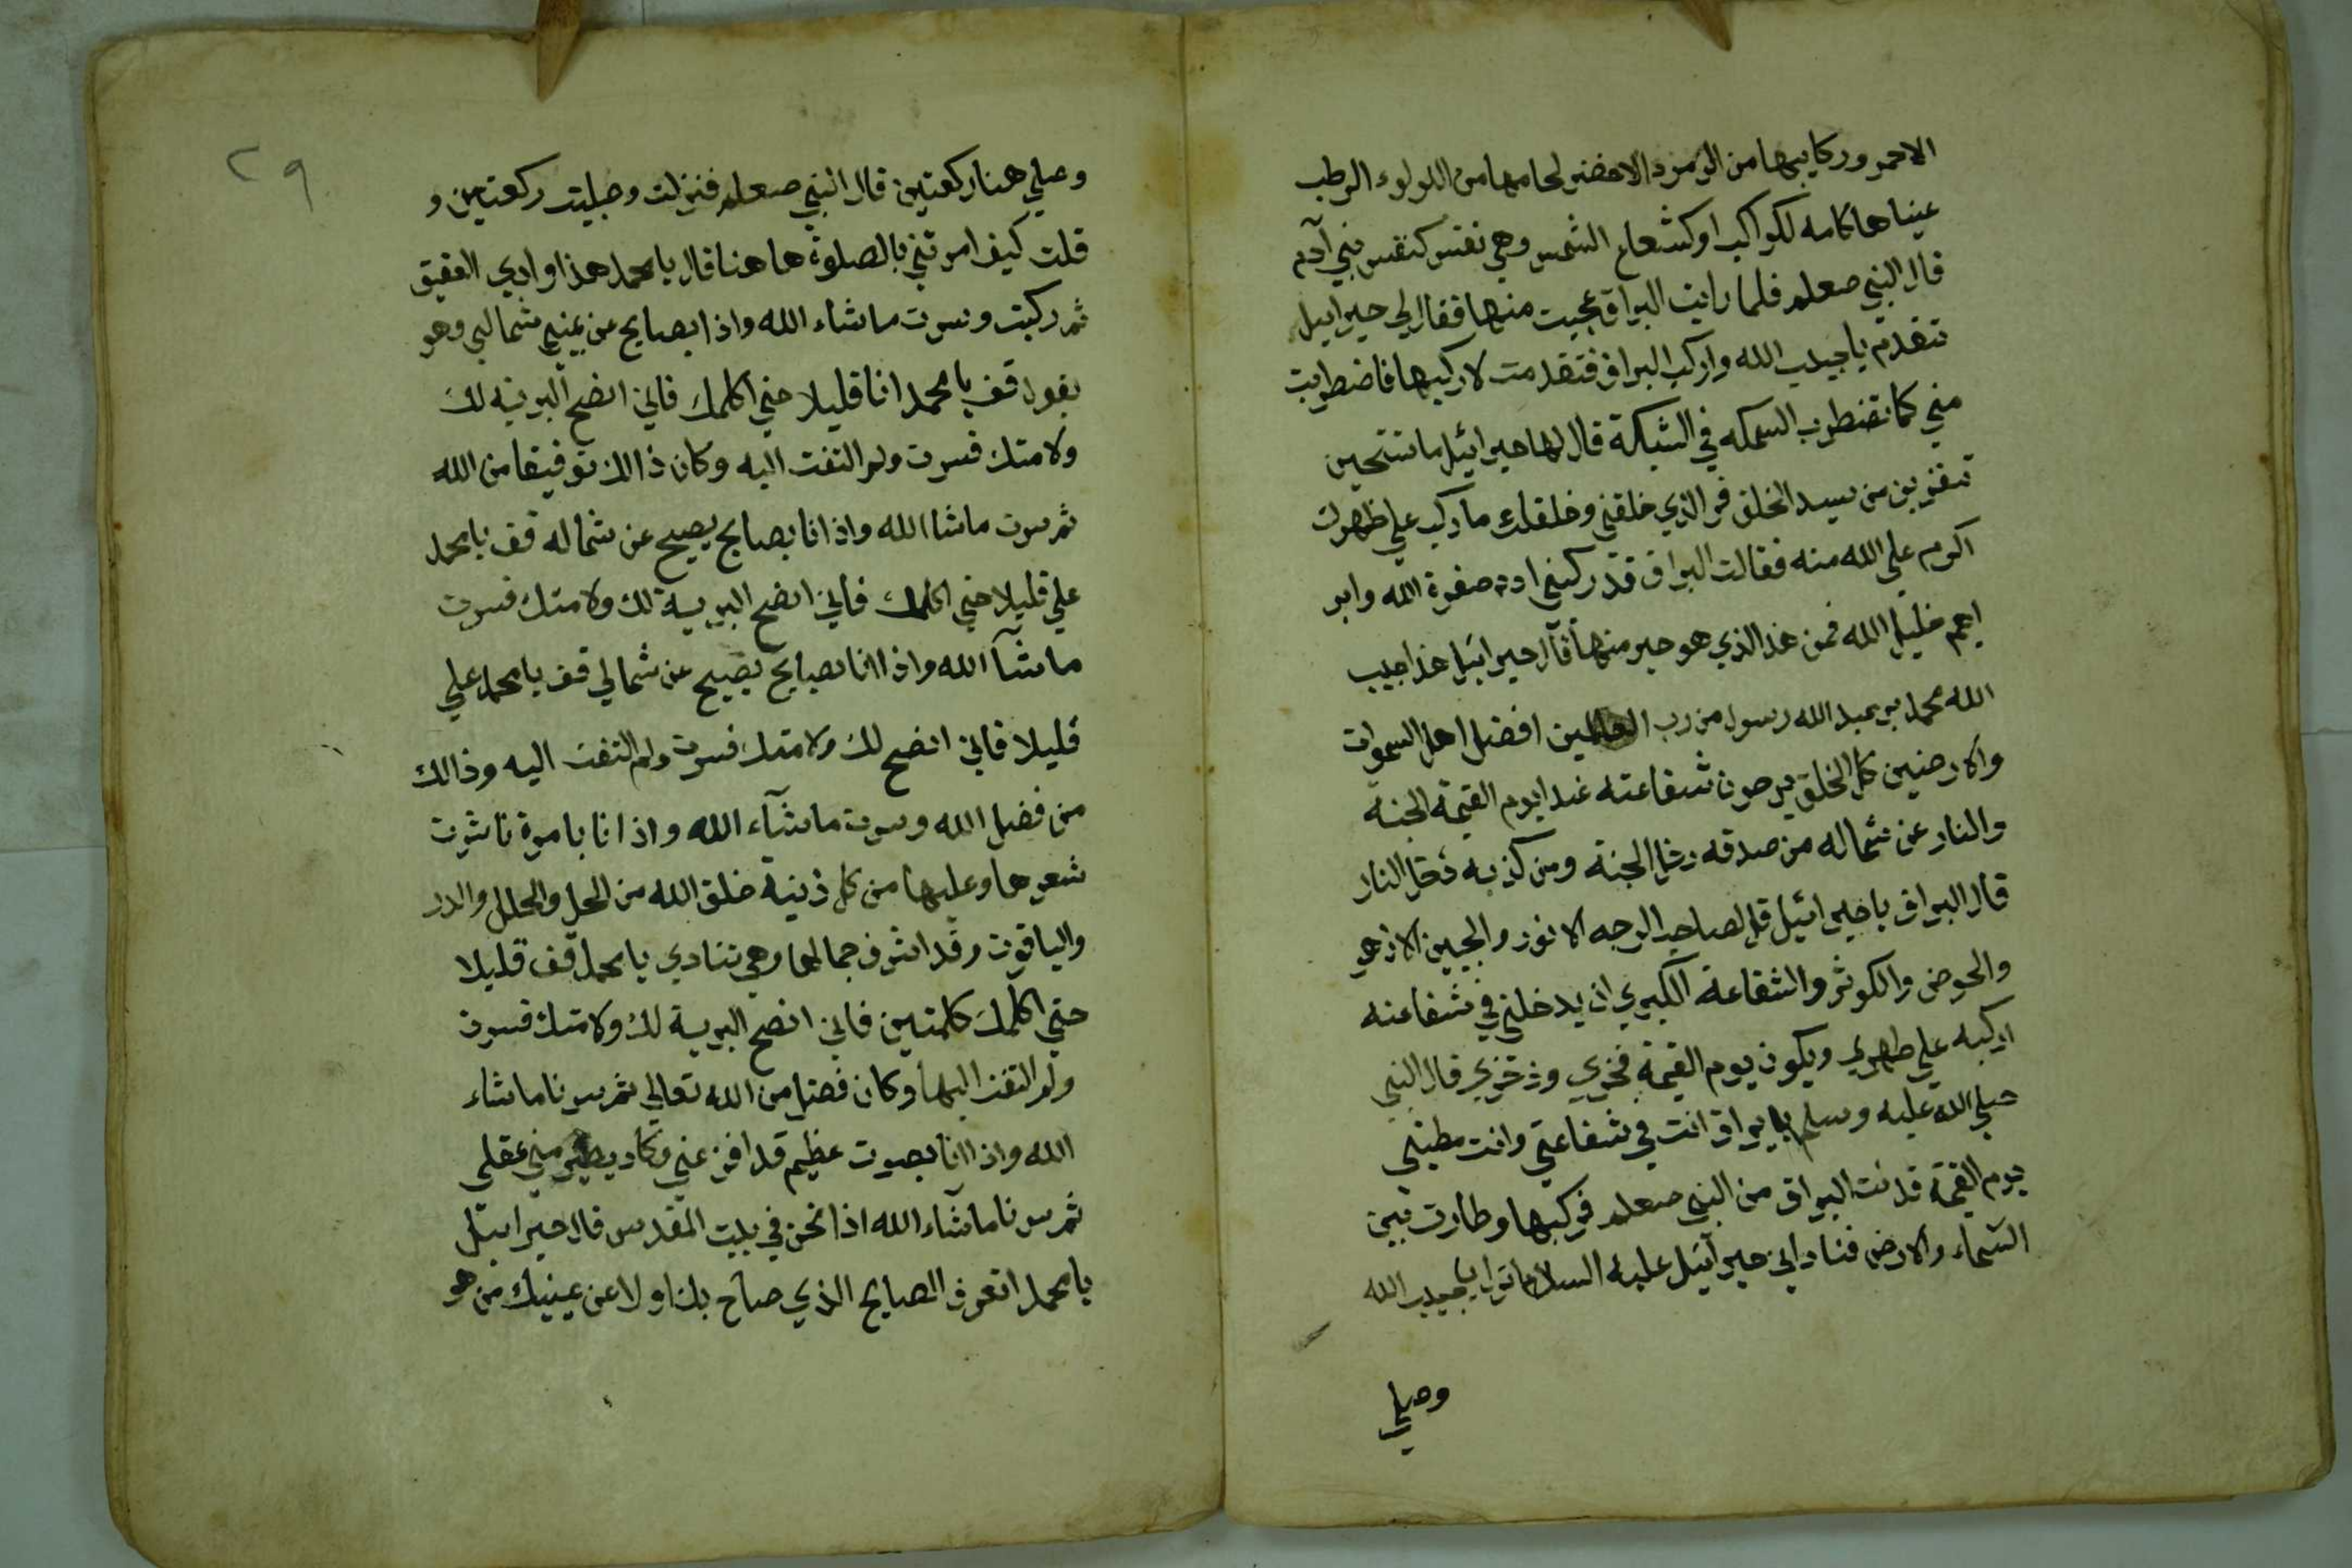 الاحمر وركابيها من الزمرد الاخضر لجامها من اللولوء الرطب
عيناها كامه لكواكب او كشعاع الشمس وهي نفتس كنفس بني آدم
قال النبي صعلم فلما رايت البراق عجبت منها فقال لي جبرايل
تتقدم يا حبيب الله واركب البراق فتقدمت لاركبها فاضطربت
مني كما تضطرب السمكه في الشبكة قال لها جبرائيل ما تستحين
تنفرين من سيد الخلق فو الذي خلقني وخلقك ما ركب علي ظهرك
اكرم علي الله منه فقالت البراق قد ركبني ادم صفوة الله وابر
اهيم خليل الله فمن هذا الذي هو خير منهما قال جبرائيل هذا حبيب
الله محمد بن عبد الله رسول من رب العالمين افضل اهل السموات
والارضين كل الخلق يرجون شفاعته غدا يوم القيمة الجنة
والنار عن شماله من صدقه دخل الجنة ومن كذبه دخل النار
قال البراق يا جبرائيل قل لصاحب الوجه الانور والجبين الازهر
والحوض والكوثر والشفاعة الكبري ان يدخلني في شفاعته
اركبه علي ظهري ويكون يوم القيمة فخري وذخري قال النبي
صلي الله عليه وسلم يا براق انت في شفاعتي وانت مطيتي
يوم القيمة فدنت البراق من النبي صعلم فركبها وطارت بين
السماء والارض فنادي اني جبرآئيل عليه السلام انزل يا حبيب الله
وصلي
٢٩
وصلي هنا ركعتين قال النبي صعلم فنزلت وصليت ركعتين و
قلت كيف امرتني بالصلوة ها هنا قال يا محمد هذا وادي العقيق
ثم ركبت وسرت ما شاء الله واذا بصايح عن يميني شمالي وهو
يقول قف يا محمد انا قليلا حتي اكلمك فاني انصح البريه لك
ولامتك فسرت ولم التفت اليه وكان ذالك توفيقا من الله
ثم سرت ما شاالله واذا انا بصايح يصيح عن شماله قف يا محمد
علي قليلا حتي اكلمك فاني انصح البرية لك ولامتك فسرت
ما شآ الله واذا انا بصايح يصيح عن شمالي قف يا محمد علي
قليلا فاني انصح لك ولامتك فسرت ولم التفت اليه وذالك
من فضل الله وسرت ما شآء الله واذا انا بامرة ناشرت
شعرها وعليها من كل زنية خلق الله من الحل والحلل والدر
والياقوت وقد اشرف جمالها وهي تنادي يا محمد قف قليلا
حتي اكلمك كلمتين فاني انصح البرية لك ولامتك فسرت
ولم التفت اليها وكان فضل من الله تعالي ثم سرنا ما شاء
الله واذا انا بصوت عظيم قد افزعني وكاد يطير مني عقلي
ثم سرنا ما شآء الله اذا نحن في بيت المقدس قال جبرائيل
يا محمد اتعرف الصايح الذي صاح بك اولا عن يمينك من هو